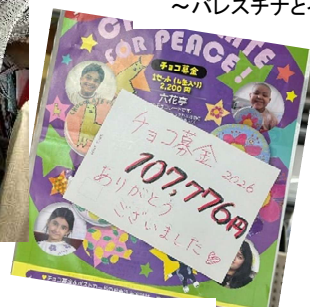 ～パレスチナと
FOR PEACE!
チョコ募金
1セット(4缶入り)
2,200円
六花亭
チョコ募金
2022.6
107,776円
ありがとう
ございました